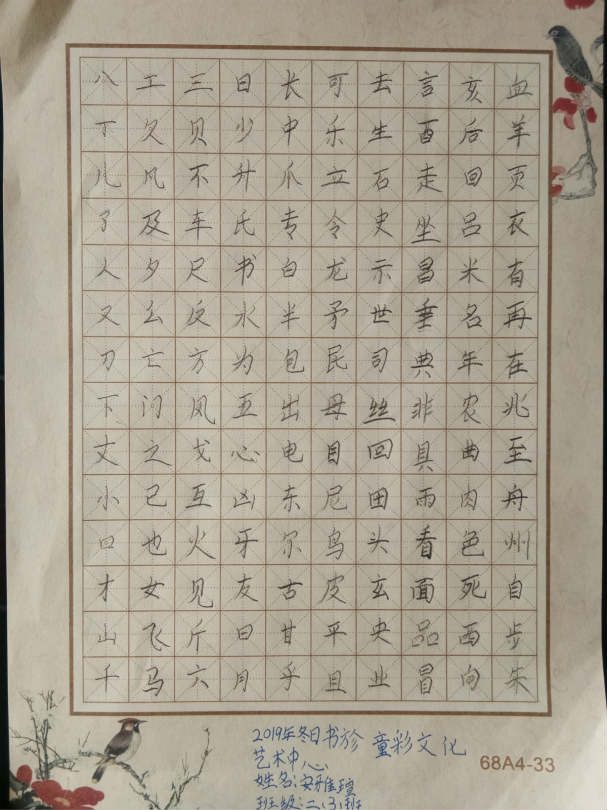 八工三日长可去言亥血
丁久贝少中乐生酉后羊
儿凡不升爪立石走回页
了及车氏专令史坐吕衣
人夕尺书白龙示昌米有
又么反水半矛世垂名再
刀亡方为包民司典年在
下门风五出母丝非农兆
丈之戈心电目回具曲至
小已互凶东尼田雨肉舟
口也火牙尔鸟头看色州
才女见友古皮玄面死自
山飞斤曰甘平央品西步
千马六月乎且业冒向朱
2019年冬日书于童彩文化
艺术中心
姓名:安雅瑄
班级:二(3)班
68A4-33